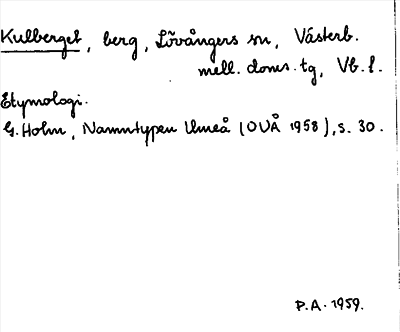 Kulberget, berg, Lövångers sn, Västerb.
mell. doms. tg, Vb. l.
Etymologi.
G. Holm, Namntypen Umeå (OUÅ 1958), s. 30.
P.A. 1959.